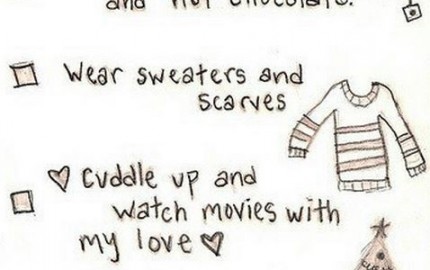 and hot chocolate.
Wear sweaters and
scarves
♡ Cuddle up and
watch movies with
my love ♡